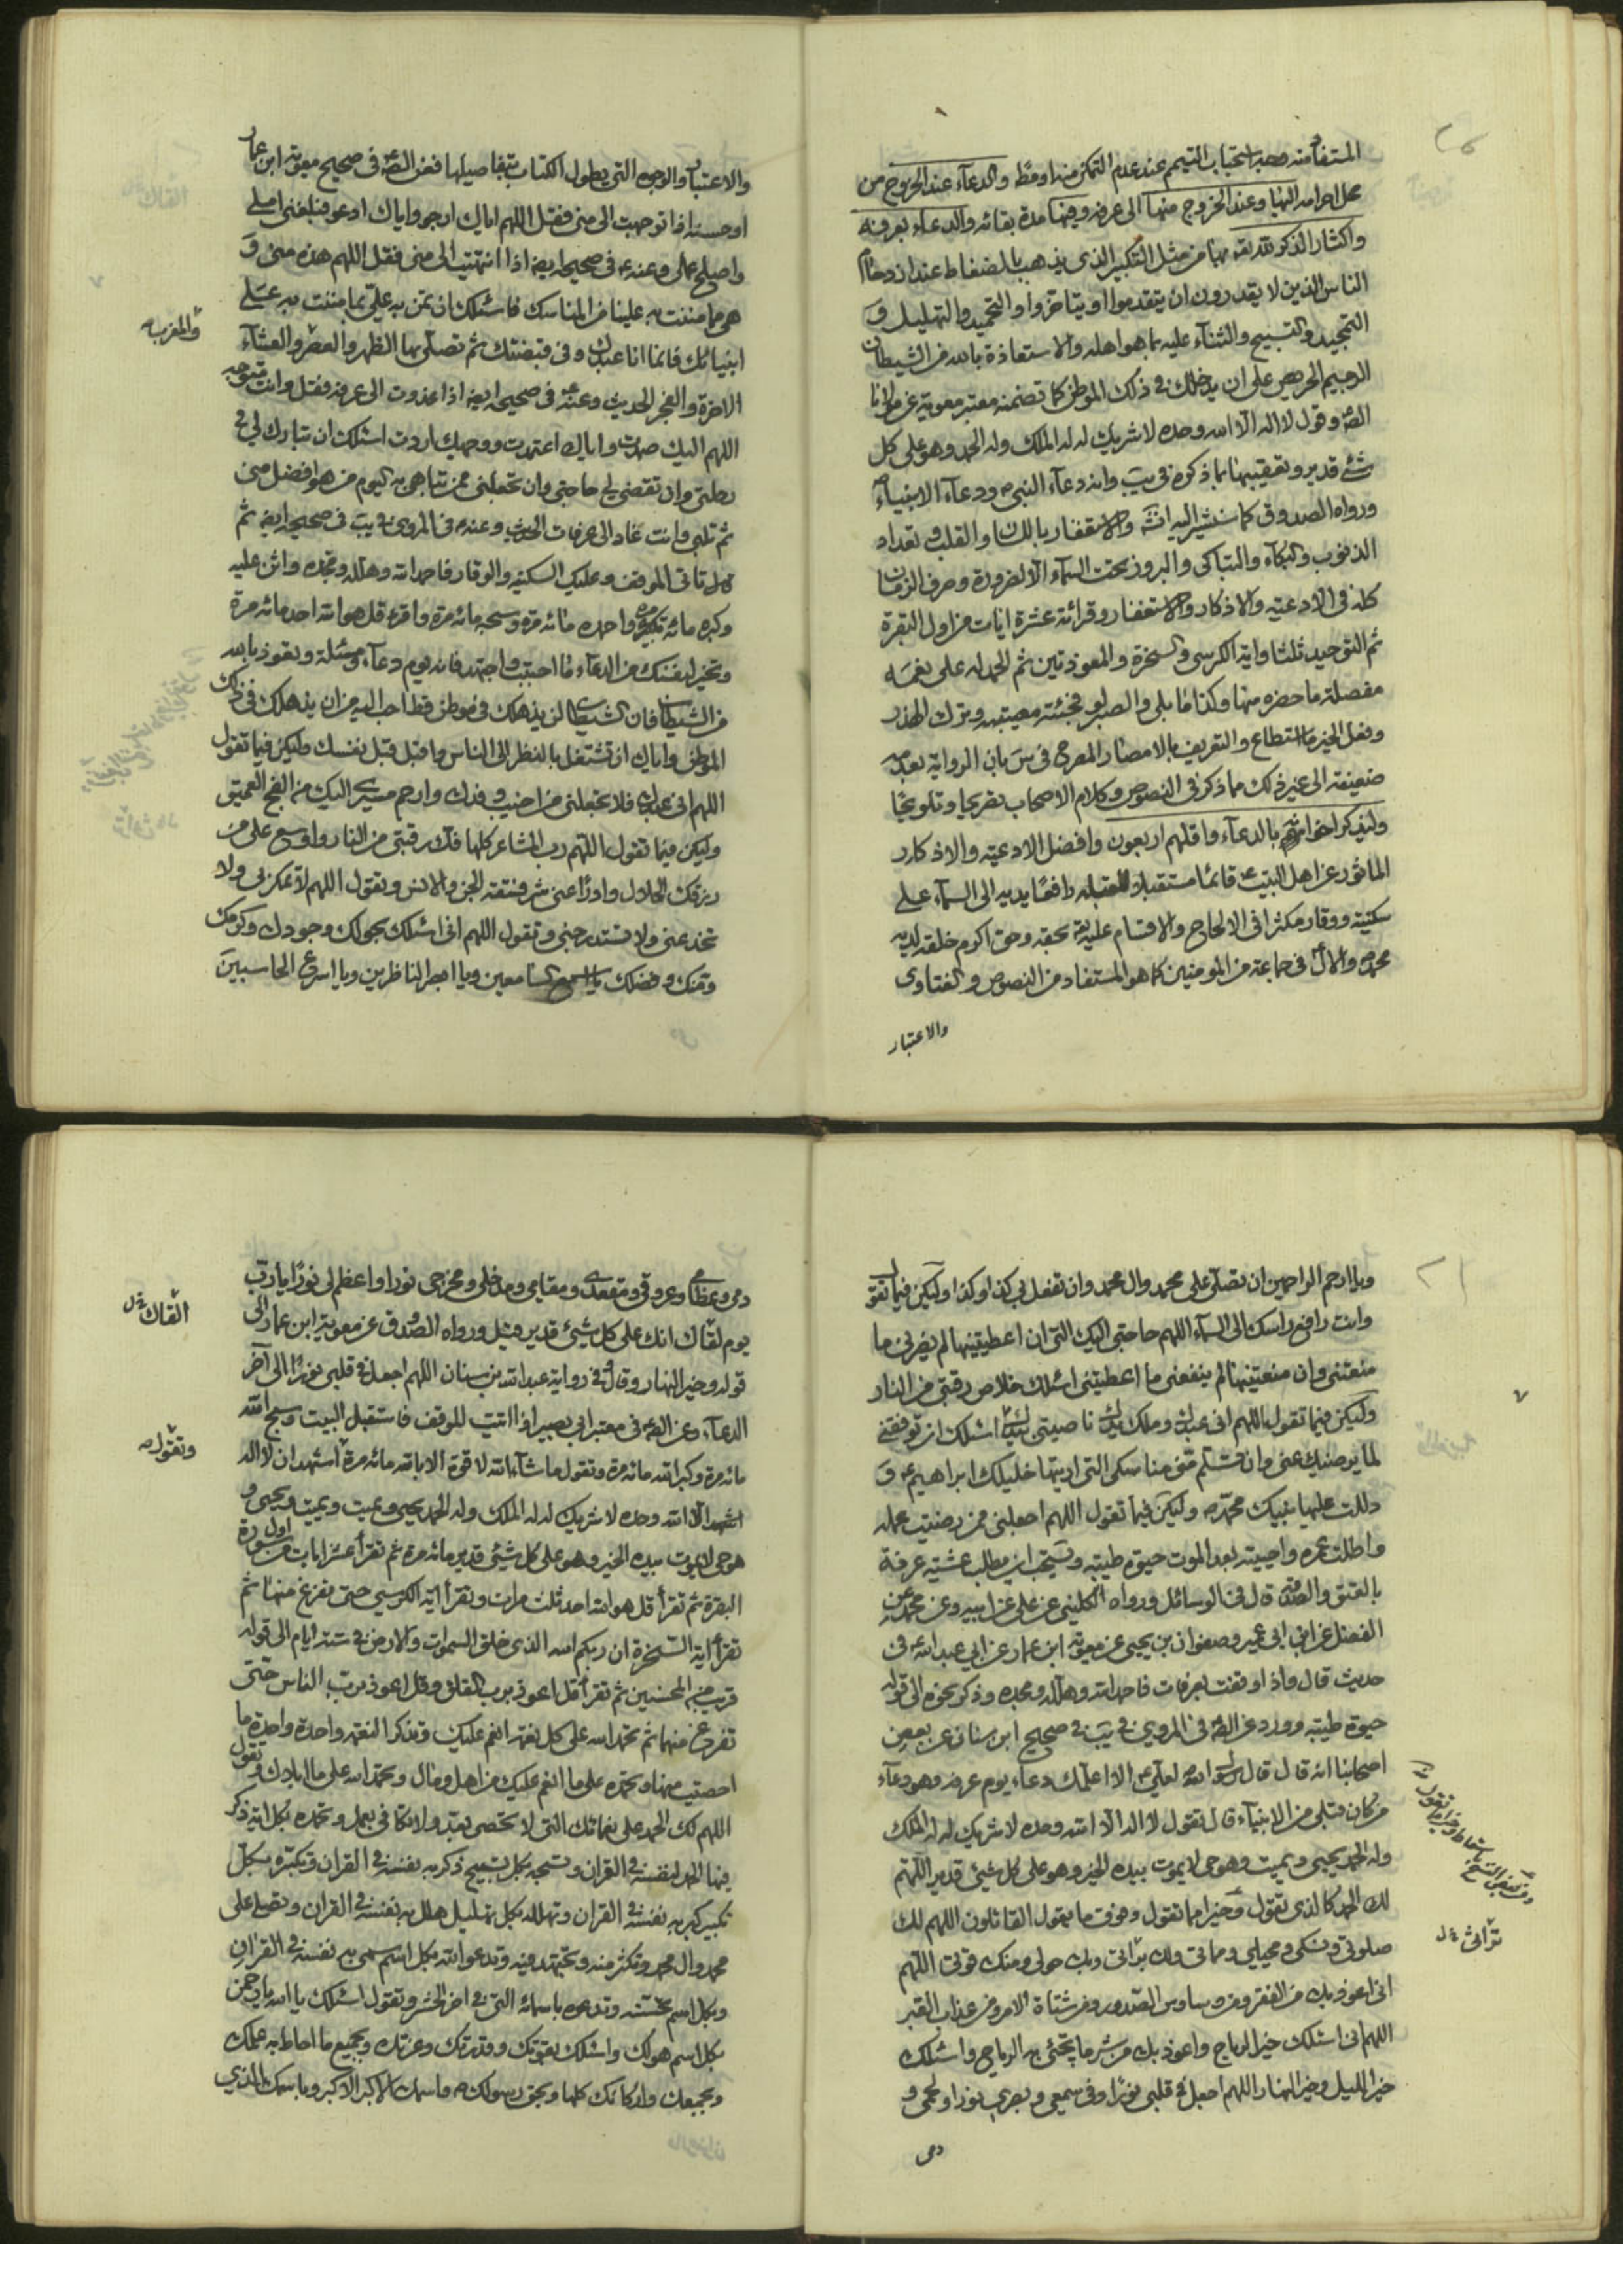 المستفاد منه صحة استحباب التيمم عند عدم التمكن منها ومطّ والدعآء عند الخروج من
محل احرامه اليها وعند الخروج منها الى عرفه وفيها مدة بقائه والدعاء بعرفه
واكثار الذكر لله تعه بها من مثل التكبير الذى يذهب بالضغاط عند ازدحام
الناس الذين لا يقدرون ان يتقدموا او يتاخروا والتحميد والتهليل و
التمجيد والتسبيح والثنآء عليه بما هو اهله والاستعاذة بالله من الشيطان
الرجيم الحريص على ان يذهلك في ذلك الموطن كما تضمنه معتبر معوية عن مولانا
الصه وقول لا اله الا الله وحده لا شريك له له الملك وله الحمد وهو على كل
شئ قدير وتعقيبها بما ذكره في يب وانه دعآء النبى ص ودعآء الانبياء
ورواه الصدوق كما سنشير اليه انشه والاستغفار باللسان والقلب وتعداد
الذنوب والبكآء والتباكى والبروز تحت السمآء الا لضرورة وصرف الزمان
كله فى الادعيه والاذكار والاستغفار وقرائة عشرة ايات من اول البقرة
ثم التوحيد ثلثا واية الكرسى والسخرة والمعوذتين ثم الحمد لله على نعمه
مفصلة ما حضره منها وكذا ما بلى والصبر لو فجئته مصيبة وترك الهذر
وفعل الخير ما استطاع والتعريف بالامصار المصرح فى س بان الرواية بعدمه
ضعيفه الى غير ذلك مما ذكر فى النصوص وكلام الاصحاب تصريحا وتلويحًا
وليذكر اخوانهم بالدعآء واقلهم اربعون وافضل الادعيه والاذكار
الماثور عن اهل البيت ع قائمًا مستقبل القبله رافعًا يديه الى السمآء على
سكينة ووقار مكثرا فى الالحاح والاقسام عليه تعه بحقه وحق اكرم خلقه لديه
محمد ص والال فى جماعة من المومنين كما هو المستفاد من النصوص والفتاوى
والاعتبار
والاعتبار والوجوه التى يطول الكتاب بتفاصيلها فعن الصه فى صحيح معوية ابن عمار
او حسنه اذا توجهت الى منى فقل اللهم اياك ارجو واياك ادعو فبلغنى املى
واصلح عملى وعنه ع فى صحيحه ايضا اذا انتهيت الى منى فقل اللهم هذه منى و
هى مما مننت به علينا من المناسك فاسئلك ان تمن به على بما مننت به على
انبيائك فانما انا عبدك وفى قبضتك ثم تصلى بها الظهر والعصر والعشآء
والمغرب ص
الاخرة والفجر الحديث وعنه فى صحيحه ايضه اذا غدوت الى عرفه فقل وانت متوجه
اللهم اليك صمدت واياك اعتمدت ووجهك اردت اسئلك ان تبارك لي في
رحلتى وان تقضى لي حاجتى وان تجعلنى ممن تباهى به اليوم من هو افضل منى
ثم تلبى وانت غاد الى عرفات الحديث وعنه ع فى المروى في يب فى صحيحه ايضه ثم
تاتى الموقف وعليك السكينه والوقار فاحمد الله وهلله ومجده واثن عليه
وكبره مائه تكبيره واحمده مائه مرة وسبحه مائه مرة واقرء قل هو الله احد مائه مرة
وتخير لنفسك من الدعآء ما احببت واجتهد فانه يوم دعآء ومسئلة وتعوذ بالله
من الشيطان فان الشيطان لن يذهلك فى موطن قط احب اليه من ان يذهلك فى ذلك
الموطن واياك ان تشتغل بالنظر الى الناس واقبل قبل نفسك وليكن فيما تقول
اللهم انى عبدك فلا تجعلنى من اخيب وفدك وارحم مسيري اليك من الفج العميق
وليكن فيما تقول اللهم رب المشاعر كلها فك رقبتى من النار واوسع على من
رزقك الحلال وادرا عنى شر فسقه الجن والانس وتقول اللهم لا تمكر بى ولا
تخدعنى ولا تستدرجنى وتقول اللهم انى اسئلك بحولك وجودك وكرمك
ومنك وفضلك يا اسمع السامعين ويا ابصر الناظرين ويا اسرع الحاسبين
ويا ارحم الراحمين ان تصلى على محمد وال محمد وان تفعل بى كذا وكذا وليكن فيما تقول
وانت رافع راسك الى السمآء اللهم حاجتى اليك التى ان اعطيتنيها لم يضرنى ما
منعتنى وان منعتنيها لم ينفعنى ما اعطيتنى اسئلك خلاص رقبتى من النار
وليكن فيما تقول اللهم انى عبدك وملك يدك ناصيتى بيدك اسئلك ان توفقنى
لما يرضيك عنى وان تسلم منى مناسكى التى اريتها خليلك ابراهيم ع و
دللت عليها نبيك محمد ص وليكن فيما تقول اللهم اجعلنى ممن رضيت عمله
واطلت عمره واحييته بعد الموت حيوة طيبه ويستحب ان يطلب عشيه عرفة
بالعتق والصدقه قال فى الوسائل ورواه الكلينى عن على عن ابيه وعن محمد عن
الفضل عن ابن ابى عمير وصفوان بن يحيى عن معويه ابن عمار عن ابي عبد الله ع فى
حديث قال واذا وقفت بعرفات فاحمد الله وهلله ومجده وذكر نحوه الى قوله
حيوة طيبه وورد عن الصه فى المروي في يب في صحيح ابن سنان عن بعض
اصحابنا انه قال قال رسول الله لعلى ع الا اعلمك دعاء يوم عرفه وهو دعآء
من كان قبلى من الانبياء قال تقول لا اله الا الله وحده لا شريك له له الملك
وله الحمد يحيى ويميت وهو حى لا يموت بيده الخير وهو على كل شئ قدير اللهم
لك الحمد كالذى تقول وخيرا مما نقول وفوق ما يقول القائلون اللهم لك
صلوتى ونسكى ومحياي ومماتى ولك براتى وبك حولى ومنك قوتى اللهم
تراثى خ ل
انى اعوذ بك من الفقر ومن وساوس الصدور ومن شتات الامر ومن عذاب القبر
اللهم انى اسئلك خير الرياح واعوذ بك من شر ما يجئى به الرياح واسئلك
خير الليل وخير النهار اللهم اجعل في قلبى نورًا وفى سمعى وبصري نورا ولحمى و
دمى
دمى وعظامي وعروقى ومقعدى ومقامى ومدخلى ومخرجى نورا واعظم لى نورًا يا رب
يوم لقاك انك على كل شئ قدير وقيل ورواه الصدوق عن معوية ابن عمار الى
القاك خ ل
قوله وخير النهار وقال وفي رواية عبد الله بن سنان اللهم اجعل في قلبى نورًا الى آخر
الدعآء وعن الصه فى معتبر ابى بصير اذا اتيت الموقف فاستقبل البيت وسبح الله
مائه مرة وكبر الله مائه مرة وتقول ما شآء الله لا قوة الا بالله مائه مرة اشهد ان لا اله
وتقول ص
الا الله وحده لا شريك له له الملك وله الحمد يحيى ويميت ويميت ويحيى و
هو حى لا يموت بيده الخير وهو على كل شئ قدير مائه مرة ثم تقرأ عشر ايات من اول سورة
البقرة ثم تقرأ قل هو الله احد ثلث مرات وتقرأ اية الكرسي حتى تفرغ منها ثم
تقرأ اية السخرة ان ربكم الله الذى خلق السموات والارض في ستة ايام الى قوله
قريب من المحسنين ثم تقرأ قل اعوذ برب الفلق وقل اعوذ برب الناس حتى
تفرغ منهما ثم تحمد الله على كل نعمة انعم عليك وتذكر النعمه واحدة واحدة ما
احصيت منها وتحمده على ما انعم عليك من اهل ومال وتحمد الله على ما ابلاك وتقول
اللهم لك الحمد على نعمائك التى لا تحصى بعدد ولا تكافى بعمل وتحمده بكل اية ذكر
فيها الحمد لنفسه في القران وتسبحه بكل تسبيح ذكر به نفسه في القران وتكبره بكل
تكبير كبر به نفسه في القران وتهلله بكل تهليل هلل به نفسه في القران وتصلى على
محمد وال محمد وتكثر منه وتجتهد فيه وتدعو الله بكل اسم سمى به نفسه في القران
وبكل اسم تحسنه وتدعوه باسمائه التى في اخر الحشر وتقول اسئلك يا الله يا رحمن
بكل اسم هو لك واسئلك بقوتك وقدرتك وعزتك وبجميع ما احاط به علمك
وبجمعك واركانك كلها وبحق رسولك ص وباسمك الاكبر الاكبر وباسمك الذي